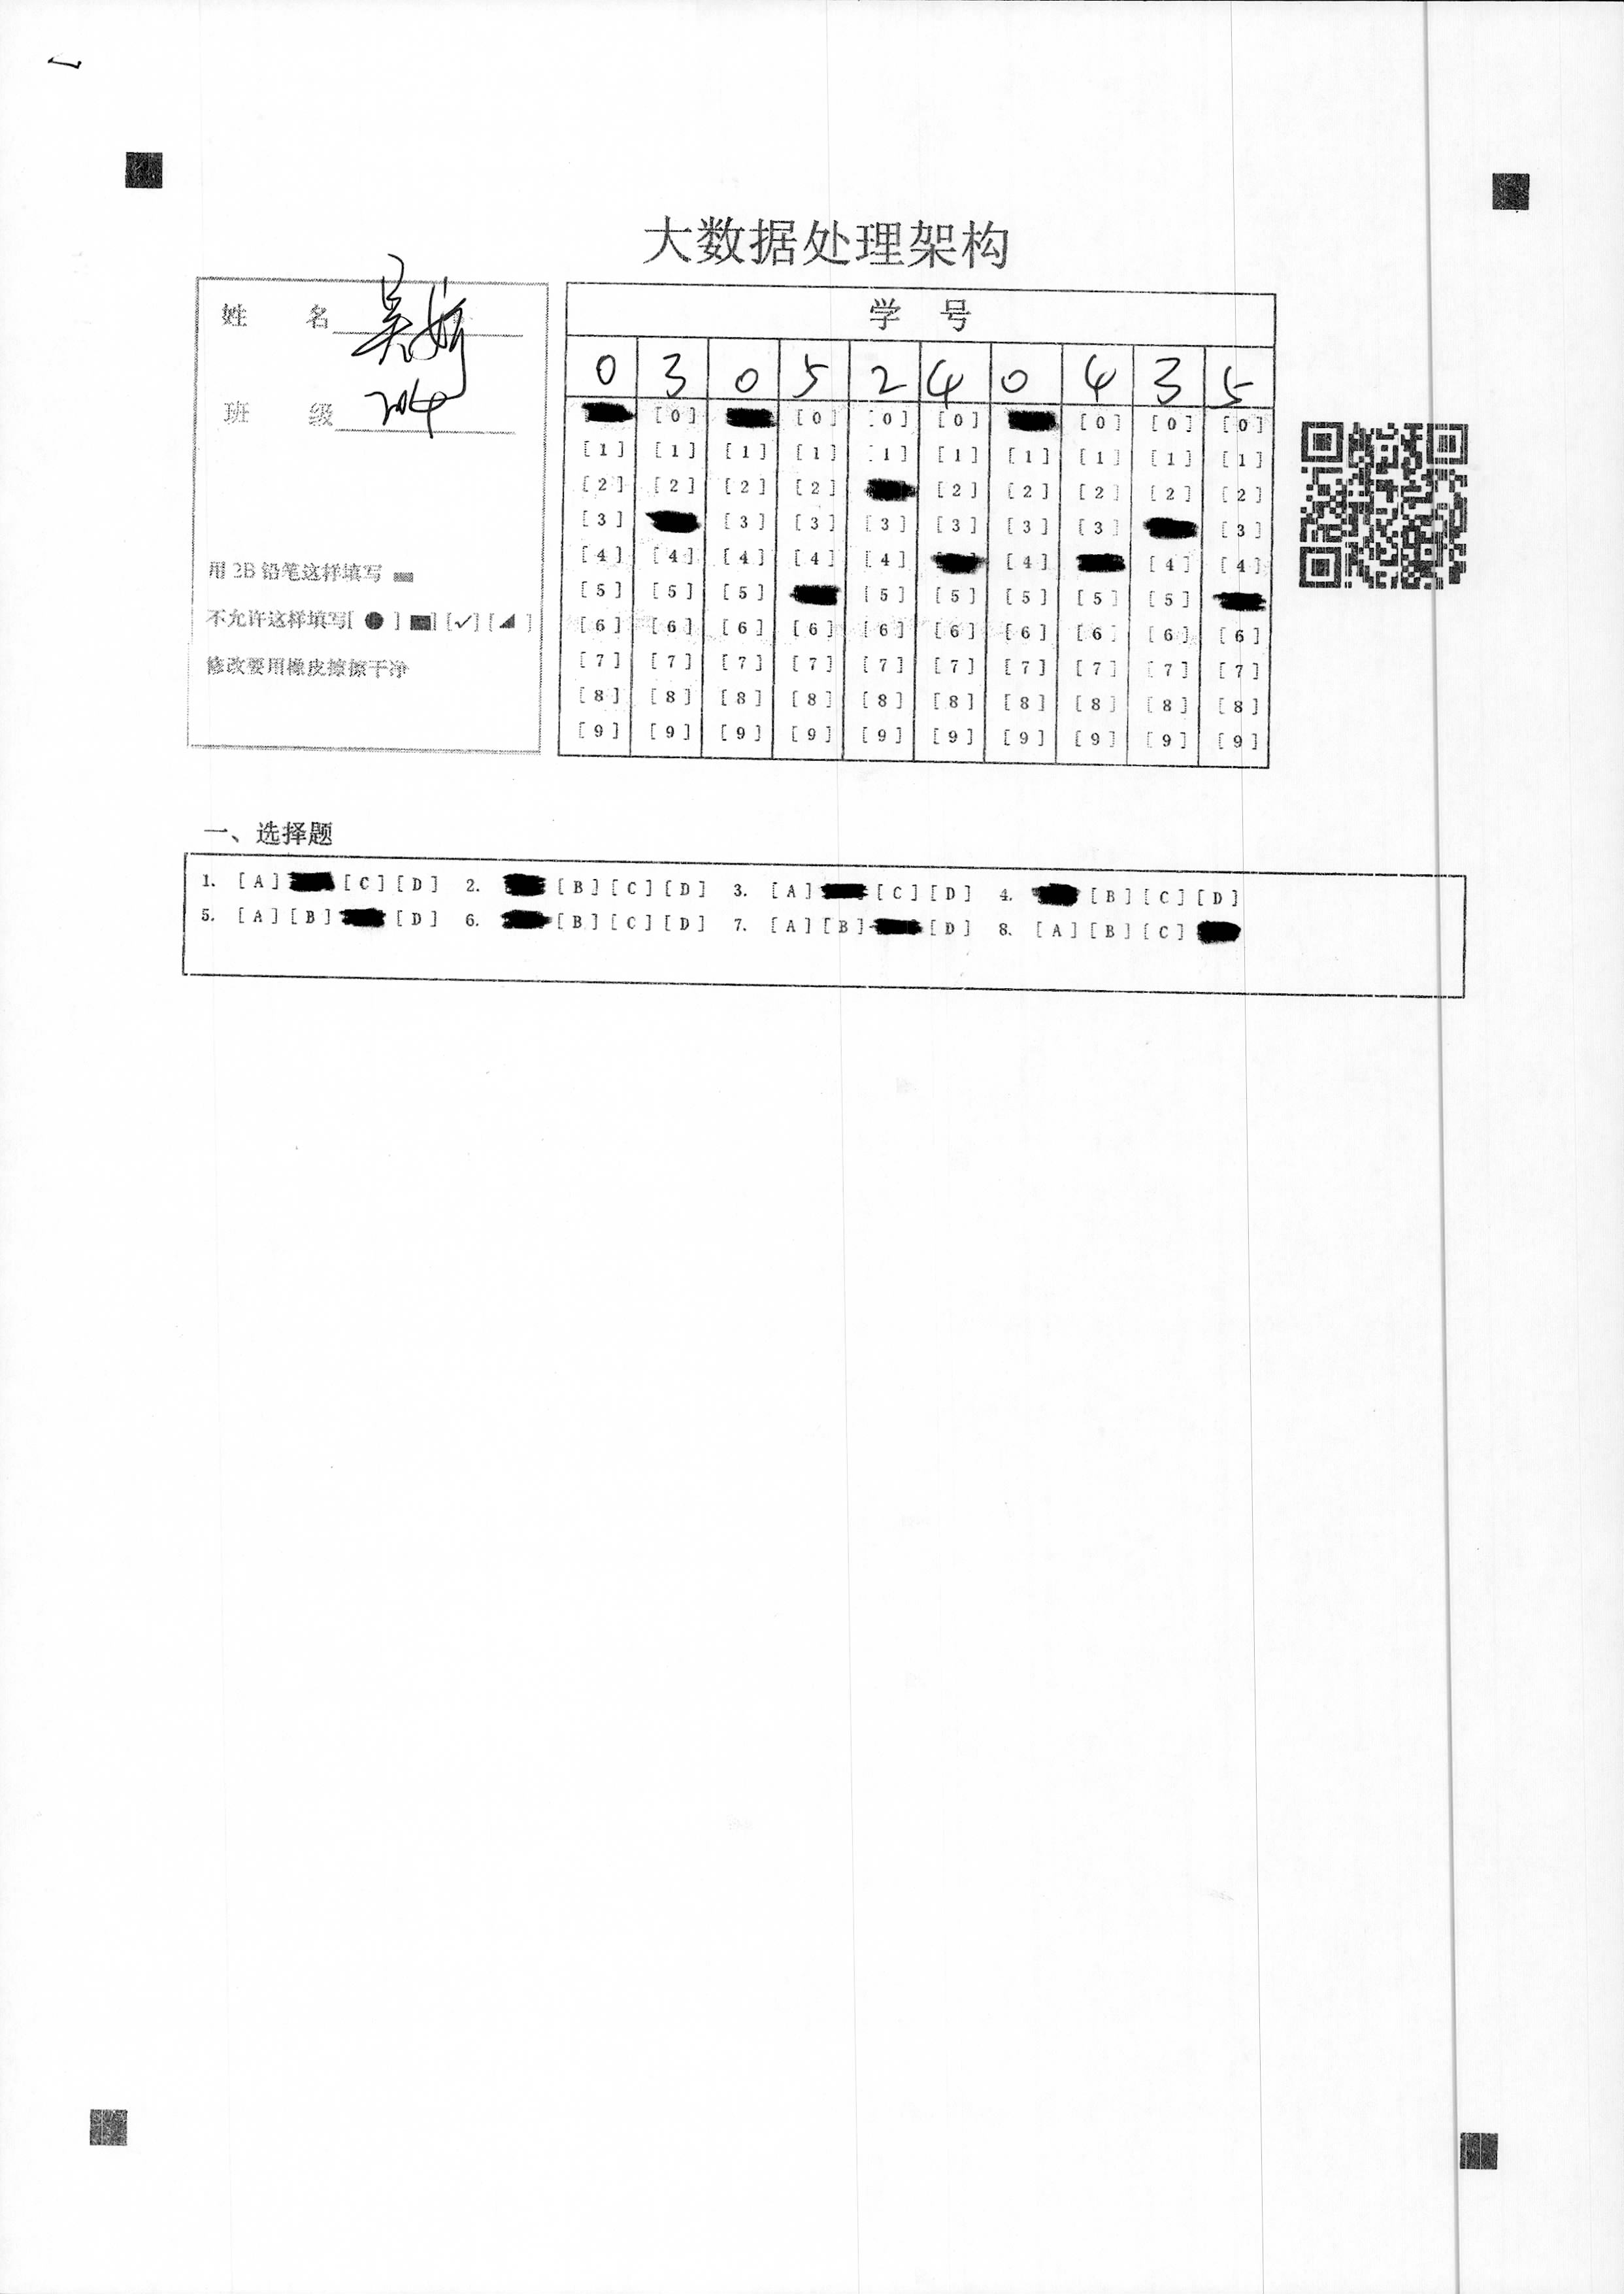 大数据处理架构
姓 名 吴妍
班 级 204
用 2B 铅笔这样填写
不允许这样填写[ ● ] [■] [✓] [◢ ]
修改要用橡皮擦擦干净
学 号
0 3 0 5 2 4 0 4 3 5
[0] [0] [0] [0] [0] [0] [0]
[1] [1] [1] [1] [1] [1] [1] [1] [1] [1]
[2] [2] [2] [2] [2] [2] [2] [2] [2]
[3] [3] [3] [3] [3] [3] [3] [3]
[4] [4] [4] [4] [4] [4] [4] [4]
[5] [5] [5] [5] [5] [5] [5] [5]
[6] [6] [6] [6] [6] [6] [6] [6] [6] [6]
[7] [7] [7] [7] [7] [7] [7] [7] [7] [7]
[8] [8] [8] [8] [8] [8] [8] [8] [8] [8]
[9] [9] [9] [9] [9] [9] [9] [9] [9] [9]
一、选择题
1. [A] [C] [D] 2. [B] [C] [D] 3. [A] [C] [D] 4. [B] [C] [D]
5. [A] [B] [D] 6. [B] [C] [D] 7. [A] [B] [D] 8. [A] [B] [C]